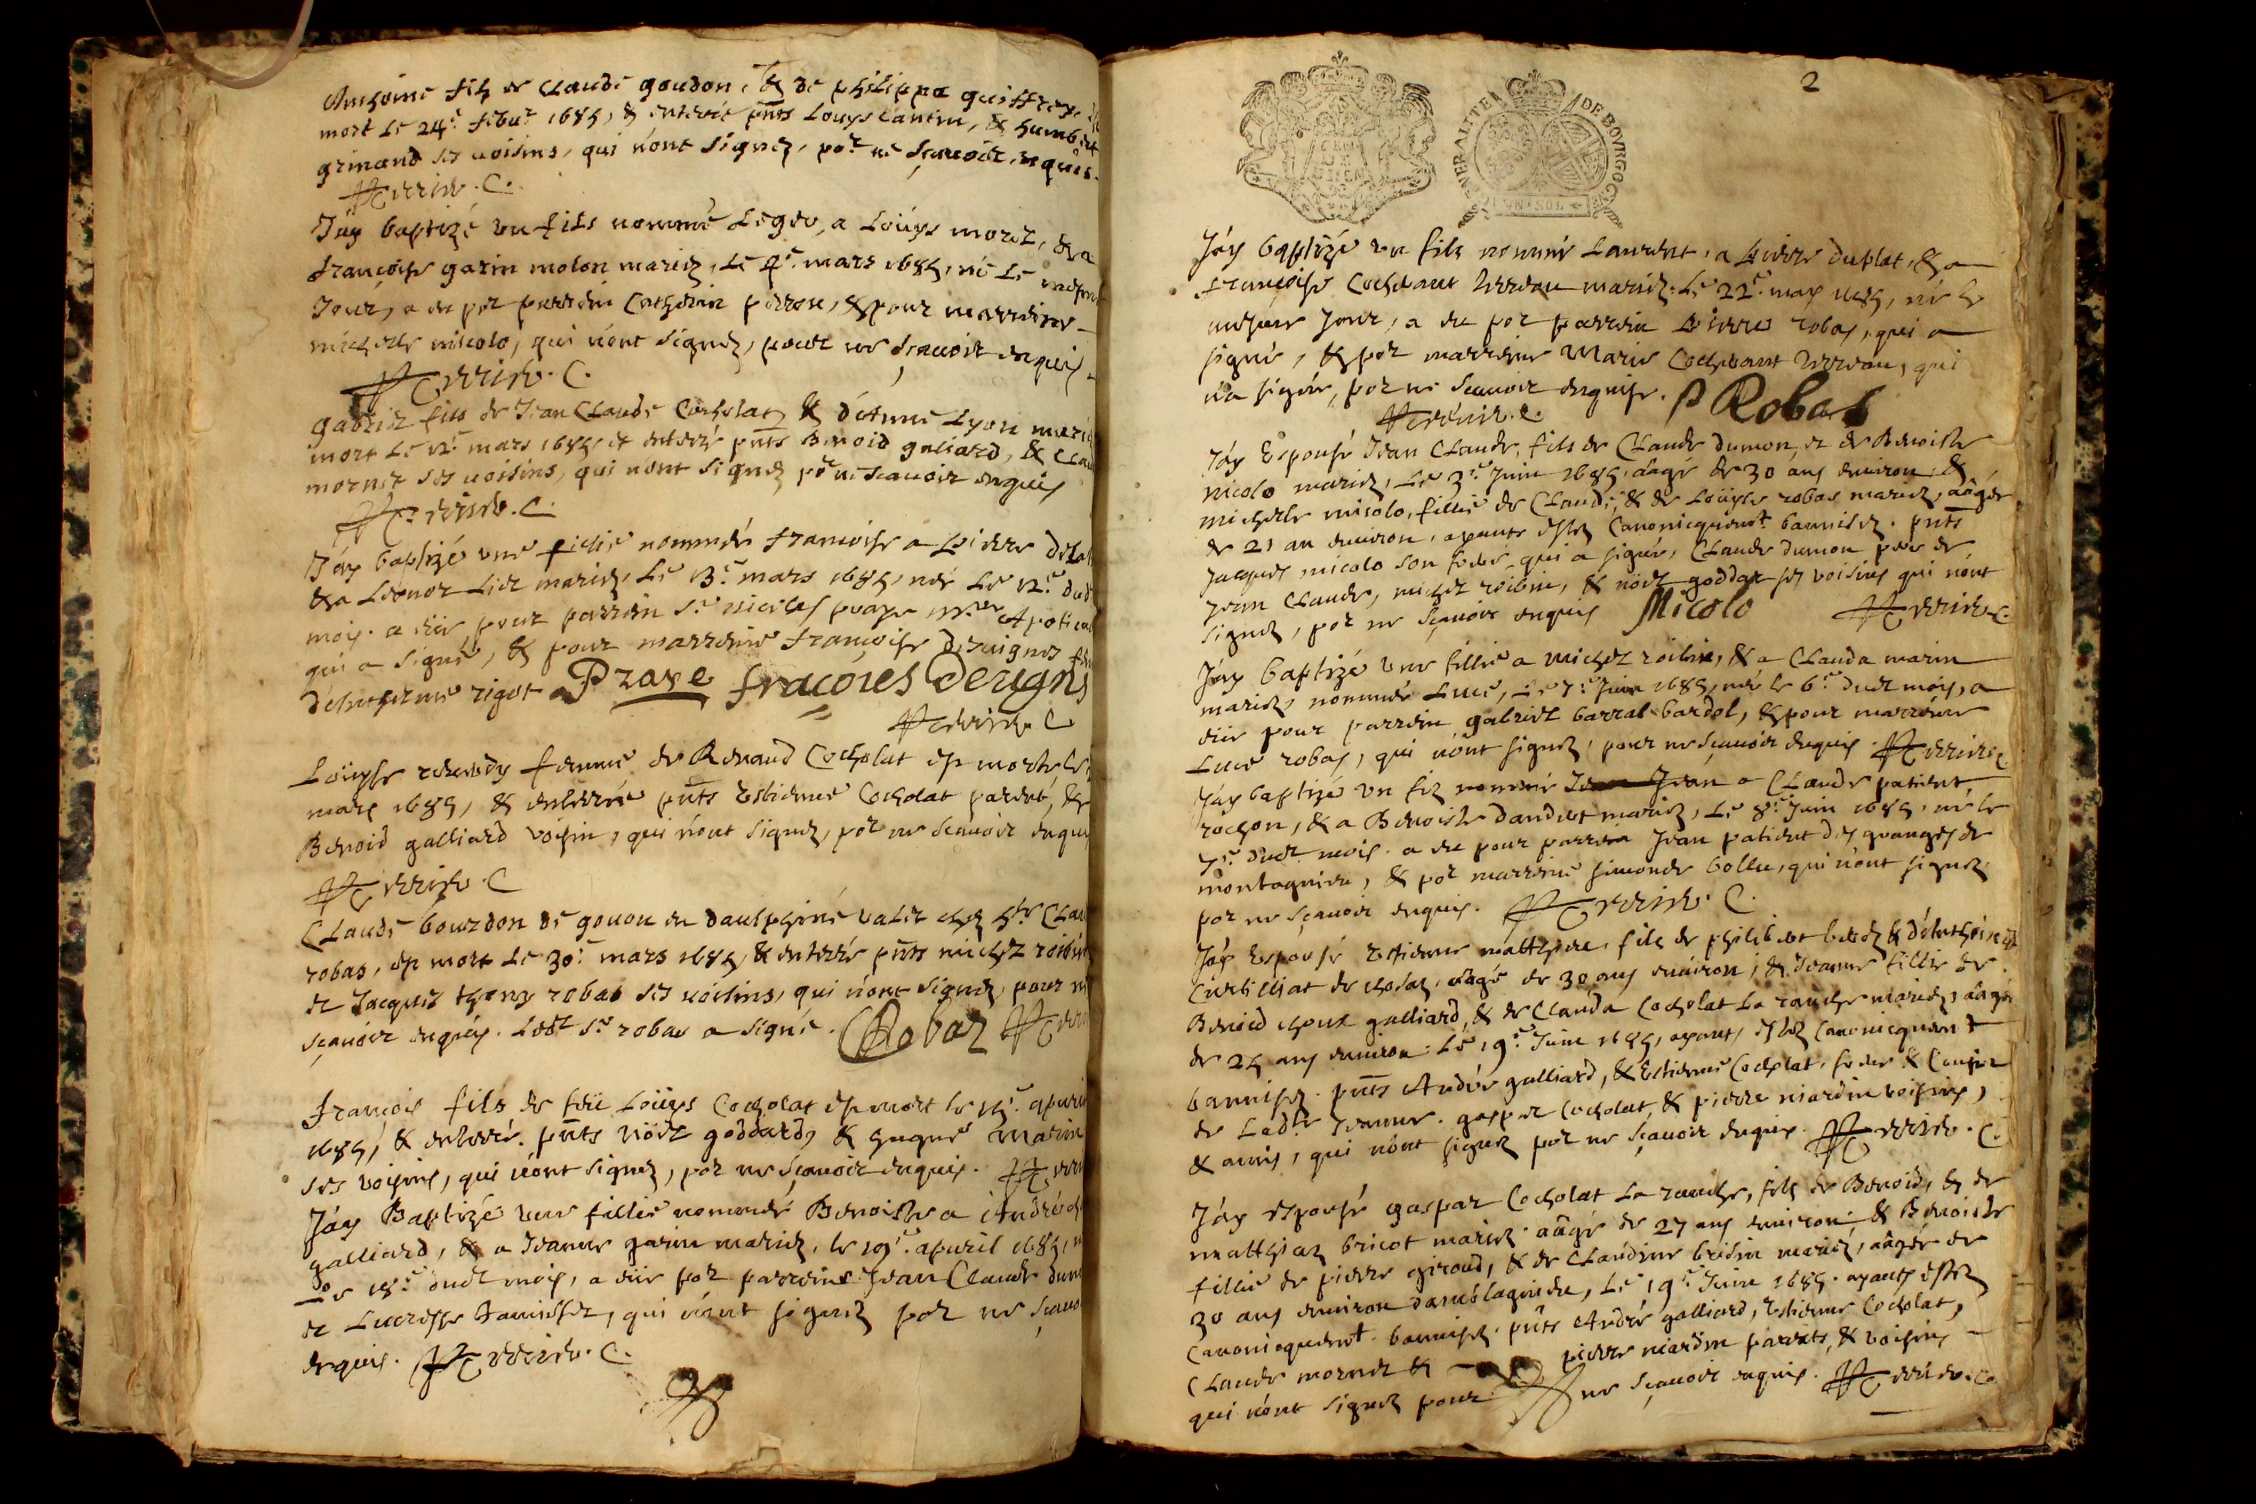 Anthoine filz de Claude goudon, & de philippa guiffrey,
mort le 24.e febu.r 1685, & enterré pnts Louys Cantin, & humbert
grimand ses uoisins, qui n'ont signez, po.r ne sçauoir, enquis.
Perrier. C.
J'ay baptizé un fils nommé Leger, a Loüys morel, & a
françoise garin molon mariez, Le 4.e mars 1685, né Le mesme
Jour, a eu por parrein Catherin perron, & pour marreine
michelle nicolo, qui n'ont signez, pour ne sçauoir enquis
Perrier. C.
gabriel fils de Jean Claude Cocholat, & d'etienne Lyon mariez
mort Le 12.e mars 1685 et enterré pnts Benoid galiard, & Clau
mornet ses uoisins, qui n'ont signez po.r ne sçauoir enquis
Perrier. C.
J'ay baptizé une fillie nommée francoise a pierre Delal
& a Leonor Liet mariez, Le 13.e mars 1685, née Le 12.e dud
mois. a eüe pour parrein s.r nicolas praye m.re Apoticai
qui a signé, & pour marreine françoise Deruignes fem
d'ehnemme rigot Praye fracoies Derugns
Perrier. C
Loüyse reverdy femme de Renaud Cocholat est morte le
mars 1685, & enterrée pnts Estienne Cocholat parent, &
Benoid galliard voisin, qui n'ont signez, por ne sçauoir enquis
Perrier. C
Claude bourdon de gouon en daulphiné valet chez s.r Clau
robas, est mort Le 30.e mars 1685, & enterré pnts michel roibin
et Jacques thony robas ses uoisins, qui n'ont signez, pour n
sçauoir enquis. Ledt s.r robas a signé. CRobas Perri
françois fils de feu Loüys Cocholat est mort le 15.e apuril
1685, & enterré. pnts Nöel goddard, & hugues marin
ses voisins, qui n'ont signez, por ne sçauoir enquis. Perri
J'ay Baptizé une fillie nommée Benoiste a André ch
galliard, & a Jeanne garin mariez, le 19.e apuril 1685, n
le 18.e dudt mois, a eüe por parreins Jean Claude dum
et Lucresse Janisset, qui n'ont signez por ne sçauo
enquis. Perrier. C.
2
GENERALITE DE BOVRGOGNE
VN SOL
J'ay baptizé un filz nommé Laurent, a pierre duplat, & a
françoise Cochonat Verdeau mariez. Le 22.e may 1685, né le
mesme Jour, a eu por parrein pierre robas, qui a
signé, & por marreine Marie Cochonat Verdeau, qui
n'a signée, por ne sçauoir enquise. P Robas
Perrier. C.
J'ay Espousé Jean Claude, fils de Claude dumon, et de Benoiste
nicolo mariez, Le 3.e Juin 1685, aâgé de 30 ans enuiron, &
michelle nicolo, fillie de Claude, & de Loüyse robas mariez, aâgée
de 21 an enuiron, ayants estez Canonicquement bannisez. pnts
Jacques nicolo son frere, qui a signé, Claude dumon pere de
Jean Claude, michel roibin, & nöel goddar ses voisins qui n'ont
signez, por ne sçauoir enquis Nicolo Perrier C.
J'ay baptizé une fillie a michel roibin, & a Clauda marin
mariez, nommée Luce, Le 7.e Juin 1685, née le 6.e dudt mois, a
eüe pour parrein gabriel barral bardol, & pour marreine
Luce robas, qui n'ont signez, pour ne sçauoir enquis. Perrier C
J'ay baptizé un filz nommé Jean a Claude patient
rochon, & a Benoiste dandet mariez, Le 8.e Juin 1685, né le
7.e dudt mois. a eu pour parrein Jean patient des granges de
montagnieu, & por marreine simonde bollu, qui n'ont signez
por ne sçauoir enquis. Perrier. C.
J'ay Espousé Estienne matthieu, filz de philibert & d'éluthoine
Curtilliat de cholaz, aâgé de 30 ans enuiron, & Jeanne fillie de
Benoid choux galliard, & de Clauda Cocholat La rauche mariez, aâgée
de 25 ans enuiron. Le 19.e Juin 1685, ayants estez Canonicquement
bannisez. pnts André galliard, & Estienne Cocholat, frere & Cousin
de Ladte Jeanne. gaspar Cocholat, & pierre niardin voisins,
& amis, qui n'ont signez por ne sçauoir enquis. Perrier. C.
J'ay espousé gaspar Cocholat La rauche, filz de Benoid, & de
matthiaz bricot mariez. aâgé de 27 ans enuiron. & Benoiste
fillie de pierre giroud, & de Claudine brisin mariez, aâgée de
30 ans enuiron Le 19.e Juin 1685. ayants estez
Canonicquement bannisez. pnts André galliard, Estienne Cocholat,
Claude mornet & pierre niardin parents, & voisins
qui n'ont signez pour ne sçauoir enquis. Perrier. C.